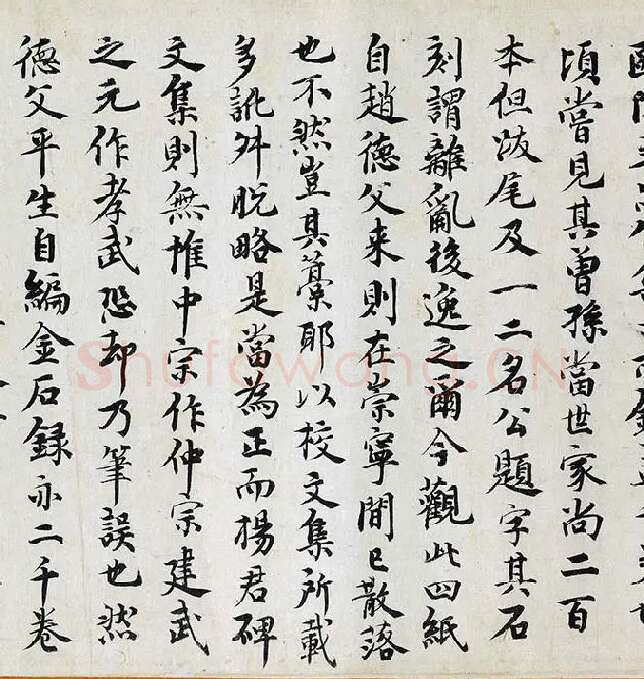 頃嘗見其曾孫當世家尚二百
本但跋尾及一二名公題字其石
刻謂離亂後逸之爾今觀此四紙
自趙德父来則在崇寧間已散落
也不然豈其藁耶以校文集所載
多訛舛脱略是當為正而楊君碑
文集則無惟中宗作仲宗建武
之元作孝武恐却乃筆誤也然
德父平生自編金石録亦二千卷
Shufawang.CN